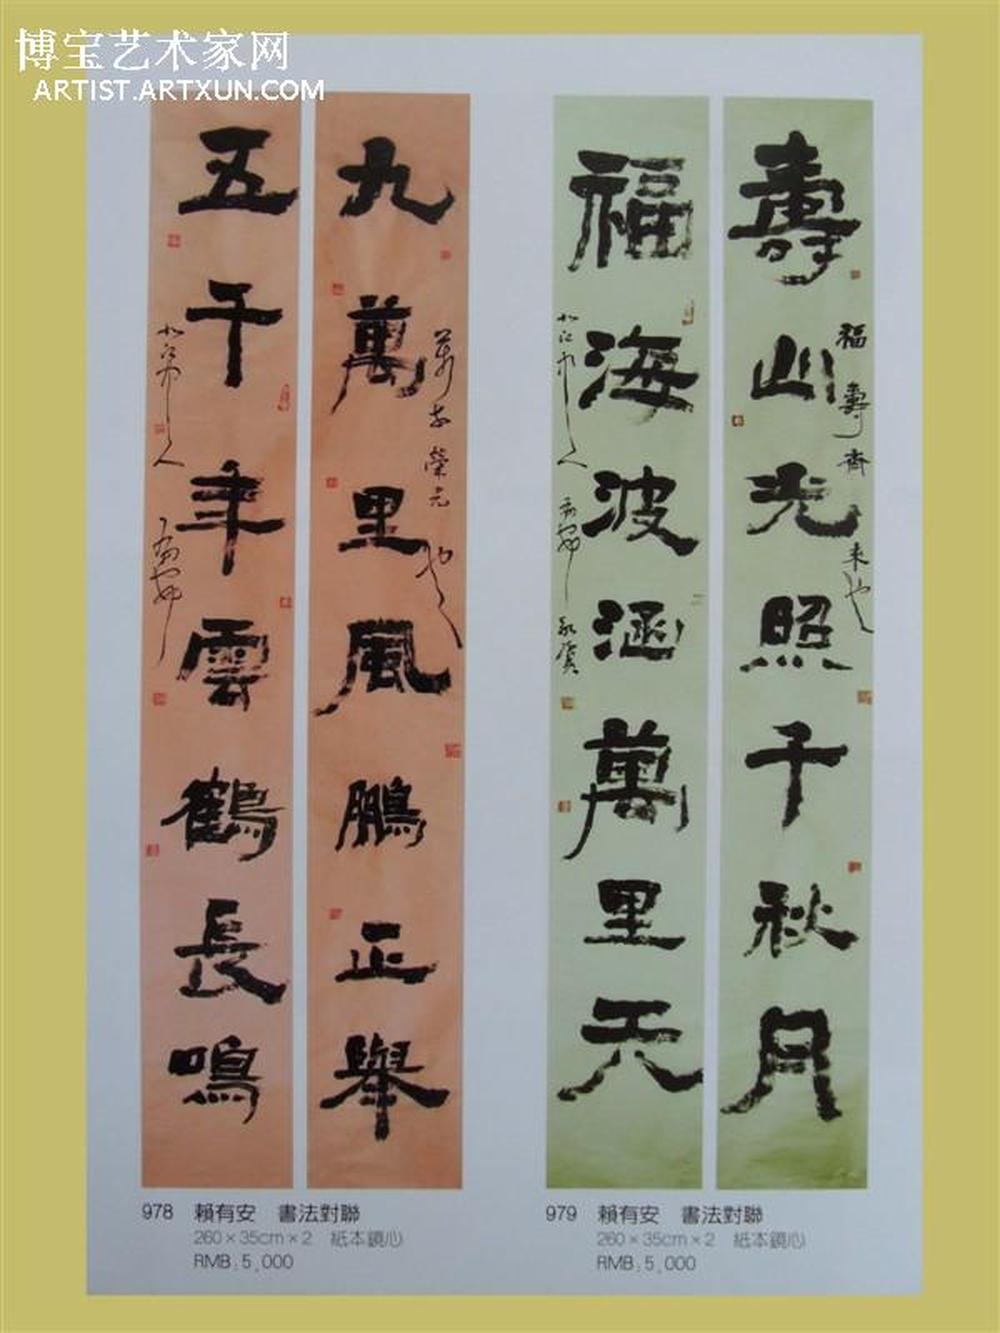 博宝艺术家网
ARTIST.ARTXUN.COM
九萬里風鵬正舉
五千年雲鶴長鳴
壽山光照千秋月
福海波涵萬里天
福壽齊來也
978 賴有安 書法對聯
260×35cm×2 紙本鏡心
RMB：5,000
979 賴有安 書法對聯
260×35cm×2 紙本鏡心
RMB：5,000